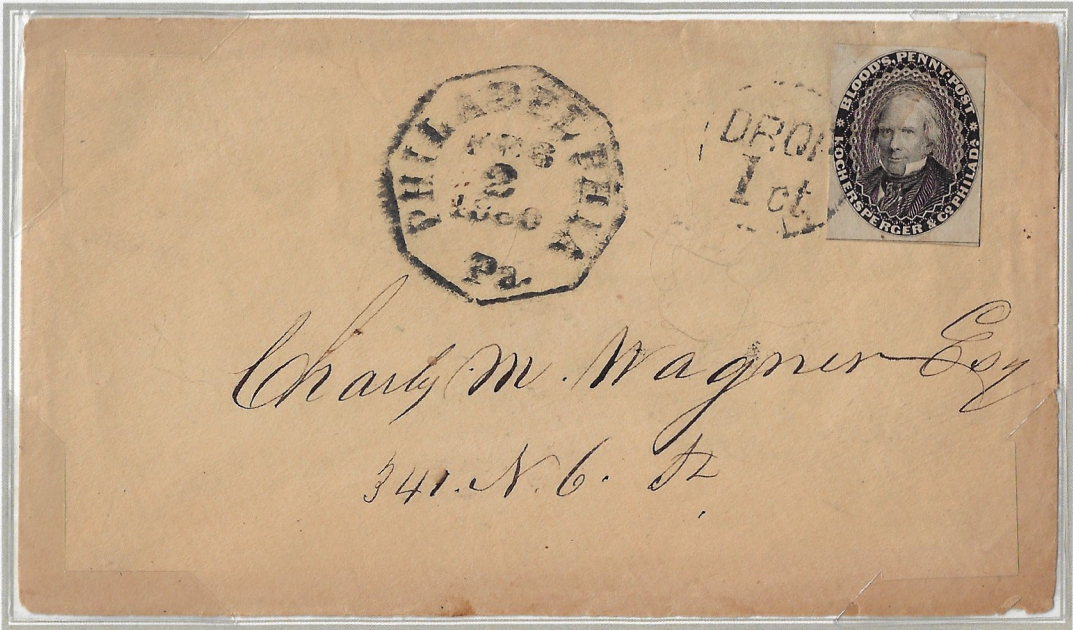 PHILADELPHIA
FEB
2
1860
Pa.
DROP
1 ct.
BLOOD'S, PENNY-POST
KOCHERSPERGER & CO. PHILADA
Charly M. Wagner Esq
341. N. 6. St